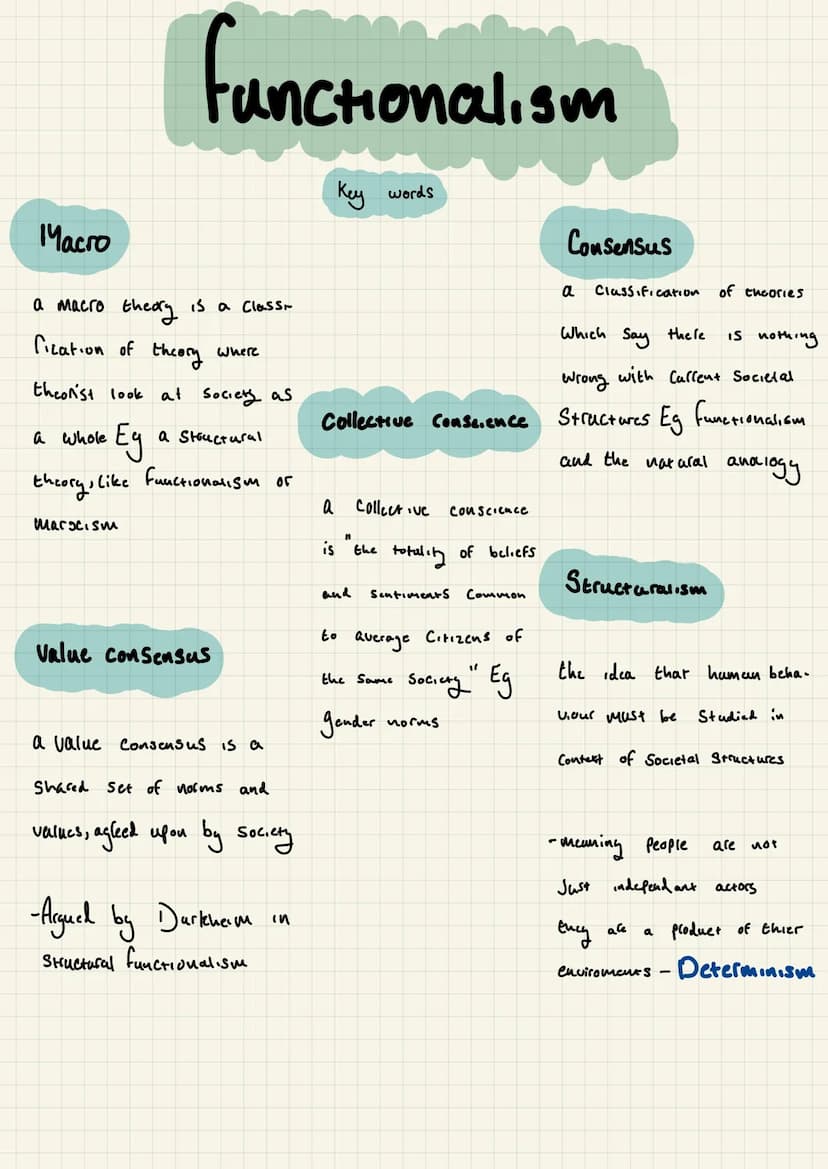 Functionalism
Key words
Macro
a macro theory is a classi-
fication of theory where
theorist look at society as
a whole Eg a structural
theory, like functionalism or
marxism
Value consensus
a value consensus is a
shared set of norms and
values, agreed upon by society
-Argued by Durkheim in
structural functionalism
Collective conscience
a collective conscience
is "the totality of beliefs
and sentiments common
to average citizens of
the same society" Eg
gender norms
Consensus
a classification of theories
which say there is nothing
wrong with current societal
structures Eg functionalism
and the natural analogy
Structuralism
the idea that human beha-
viour must be studied in
context of societal structures
-meaning people are not
just independant actors
they are a product of thier
enviroments - Determinism